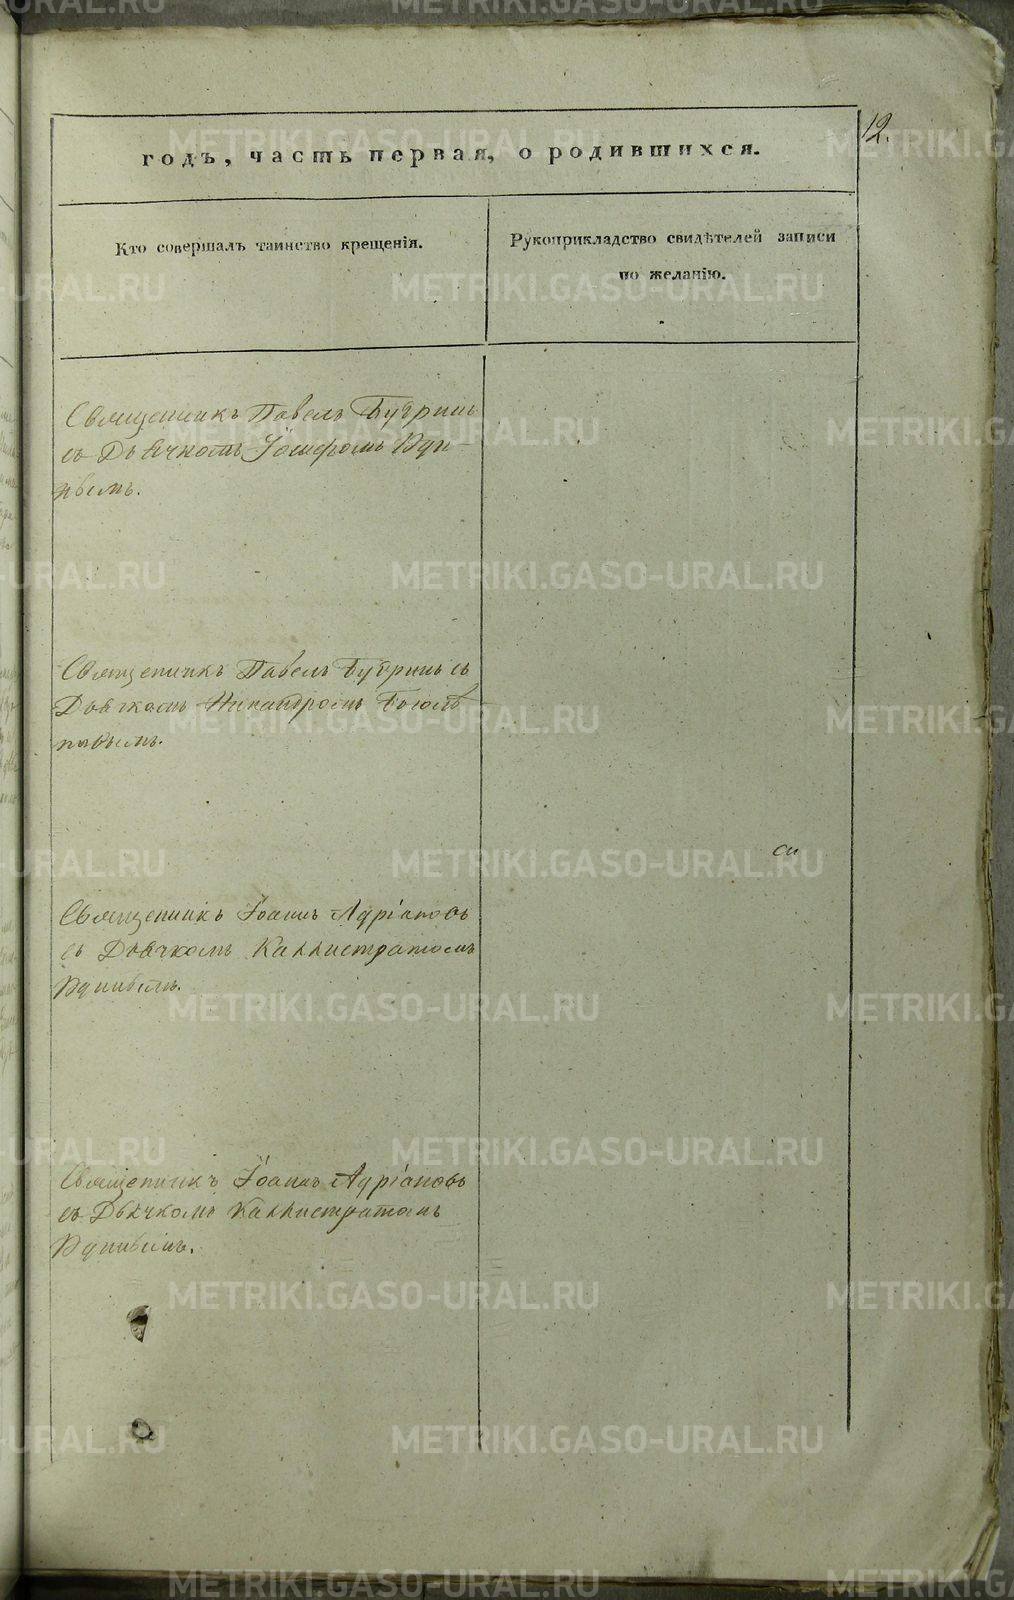 12.
годъ, часть первая, о родившихся.
Кто совершалъ таинство крещенія.
Рукоприкладство свидѣтелей записи
по желанію.
Священникъ Павелъ Бубринъ
съ Дьячкомъ Іосифомъ
Священникъ Павелъ Бубринъ съ
Дьячкомъ Никандромъ Боголѣ
повымъ.
Священникъ Іоаннъ Адріановъ
съ Дьячкомъ Каллистратомъ
Священникъ Іоаннъ Адріановъ
съ Дьячкомъ Каллистратомъ
METRIKI.GASO-URAL.RU